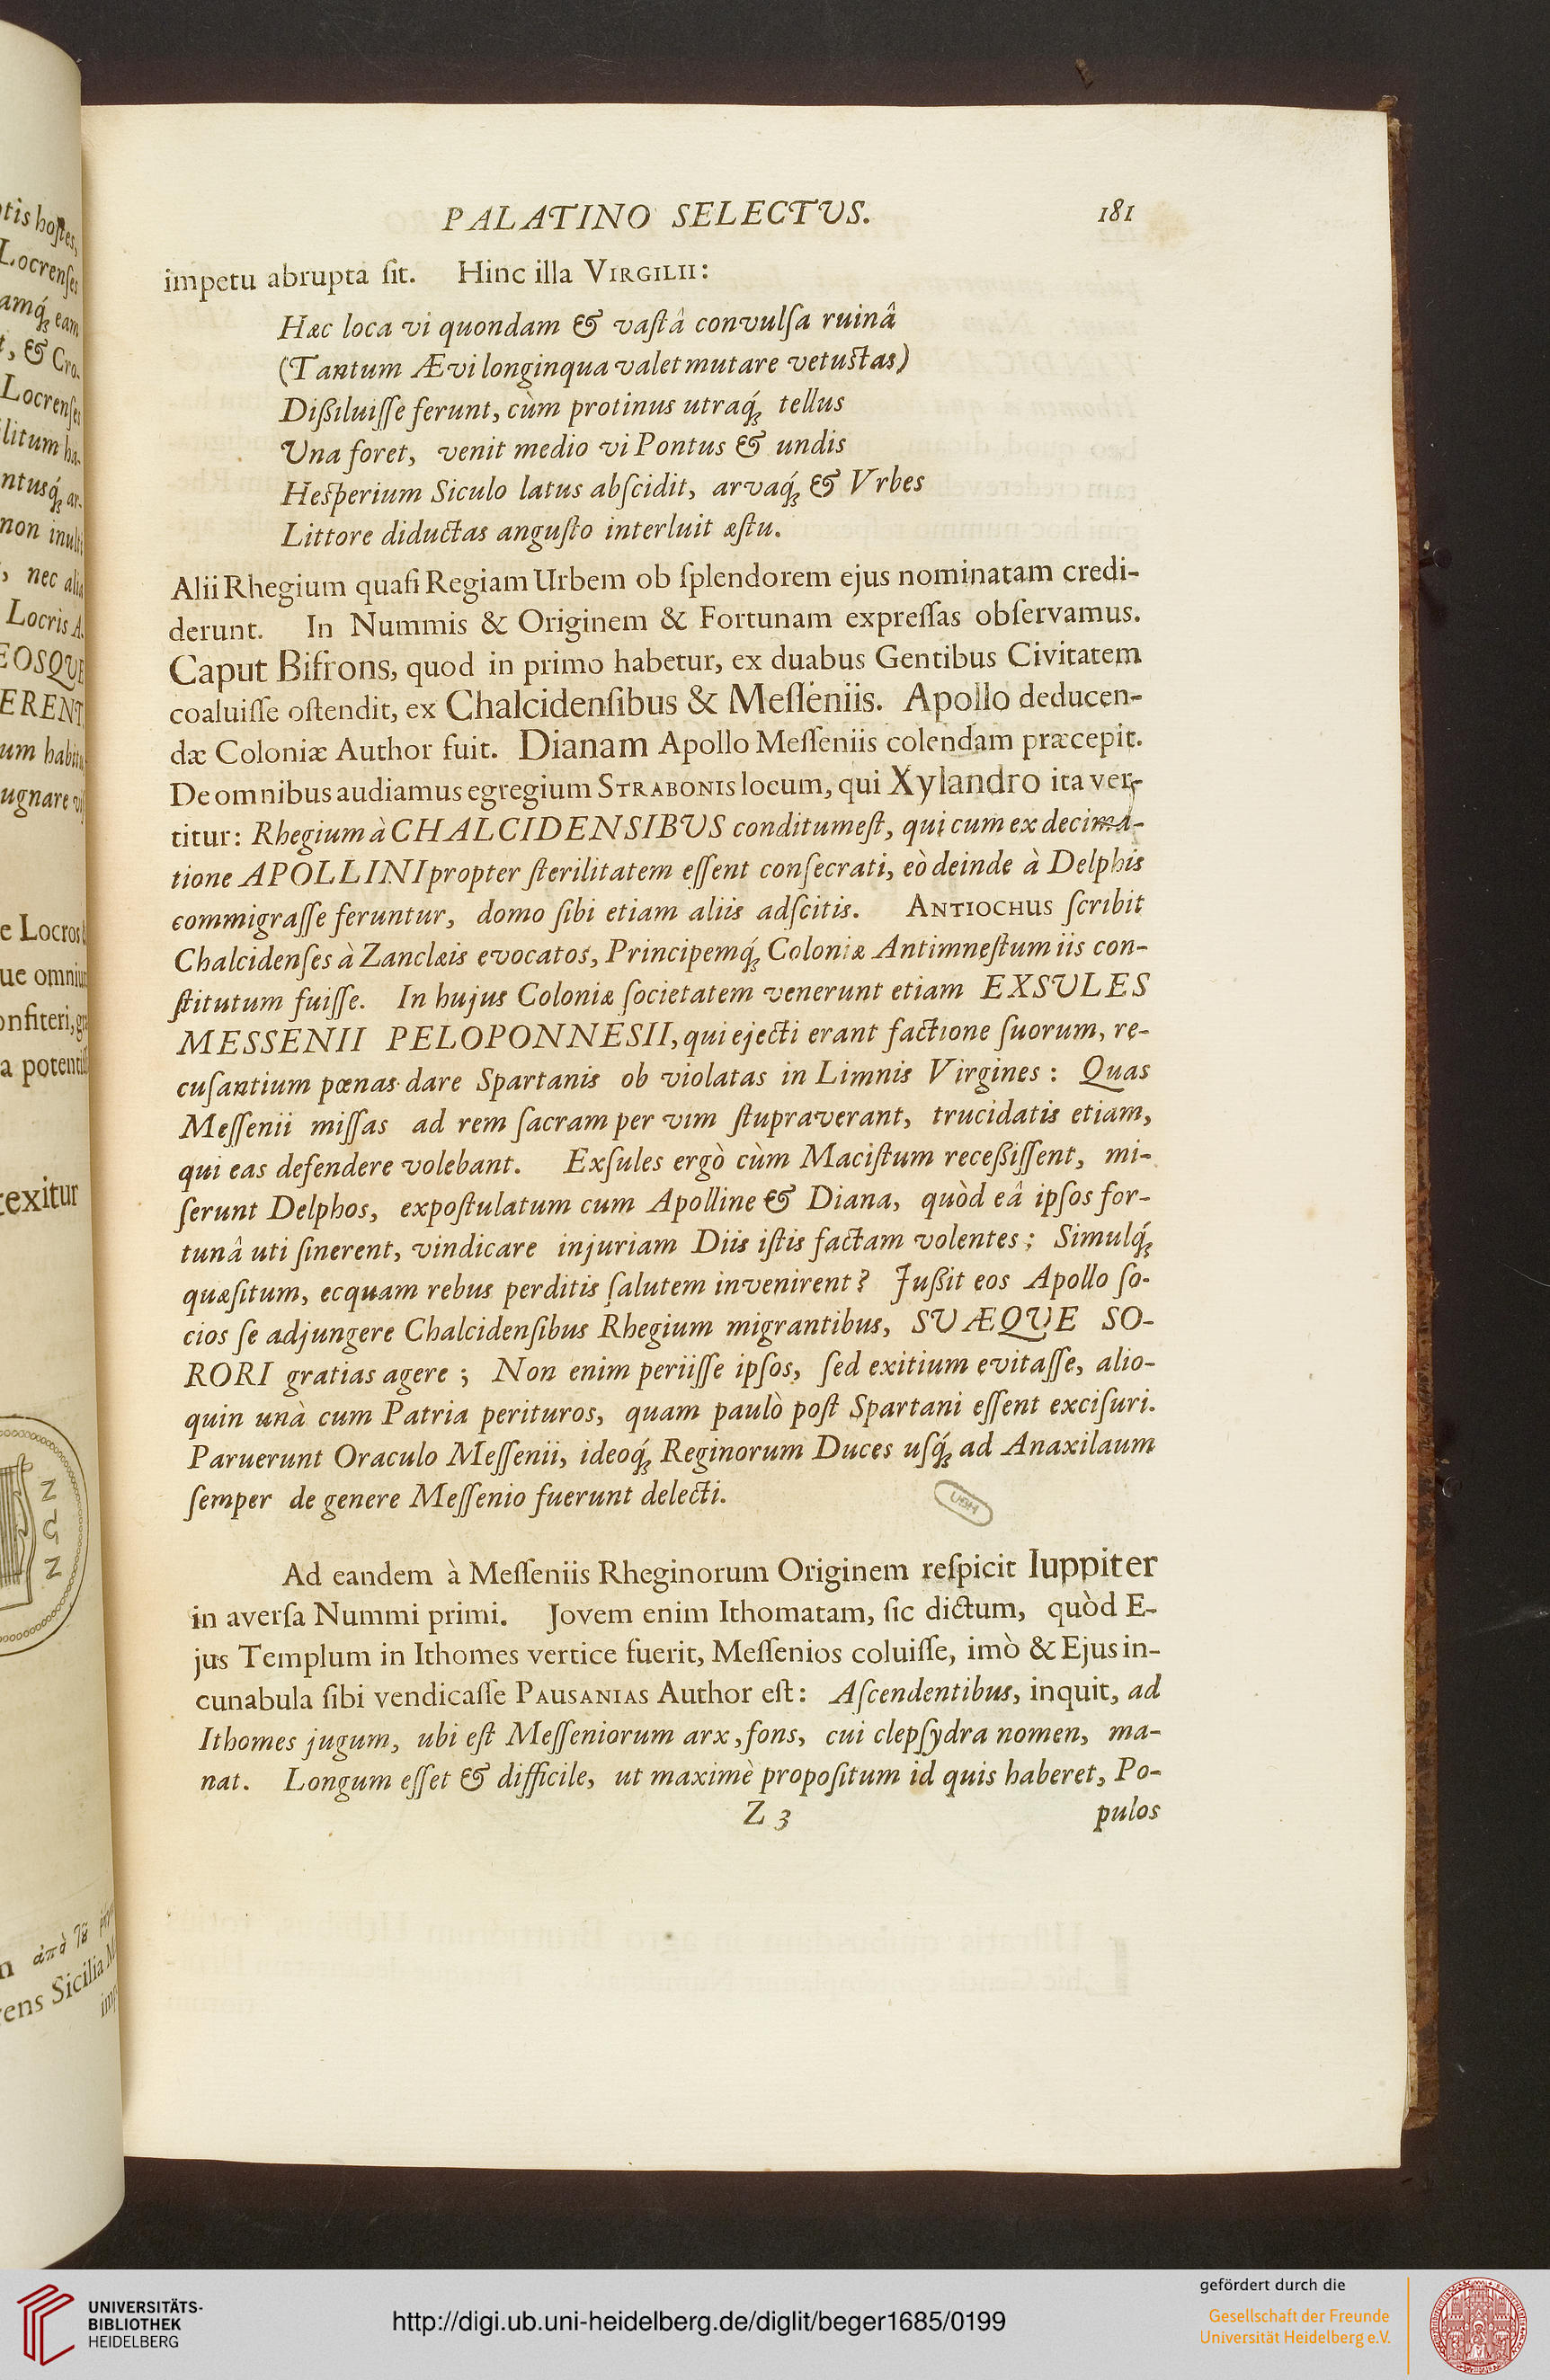 PALATINO SELECTVS. 181
impetu abrupta ſit. Hinc illa VIRGILII:
Hæc loca vi quondam & vaſtâ convulſa ruinâ
(Tantum Ævi longinqua valet mutare vetuſtas)
Dißiluiſſe ferunt, cùm protinus utraq́; tellus
Una foret, venit medio vi Pontus & undis
Heſperium Siculo latus abſcidit, arvaq́; & Vrbes
Littore diductas anguſto interluit æſtu.
Alii Rhegium quaſi Regiam Urbem ob ſplendorem ejus nominatam credi-
derunt. In Nummis & Originem & Fortunam expreſſas obſervamus.
Caput Bifrons, quod in primo habetur, ex duabus Gentibus Civitatem
coaluiſſe oſtendit, ex Chalcidenſibus & Meſſeniis. Apollo deducen-
dæ Coloniæ Author fuit. Dianam Apollo Meſſeniis colendam præcepit.
De omnibus audiamus egregium STRABONIS locum, qui Xylandro ita ver-
titur: Rhegium à CHALCIDENSIBVS conditum eſt, qui cum ex decima-
tione APOLLINI propter ſterilitatem eſſent conſecrati, eò deinde à Delphis
commigraſſe feruntur, domo ſibi etiam aliis adſcitis. ANTIOCHUS ſcribit
Chalcidenſes à Zanclæis evocatos, Principemq́; Coloniæ Antimneſtum iis con-
ſtitutum fuiſſe. In hujus Coloniæ ſocietatem venerunt etiam EXSVLES
MESSENII PELOPONNESII, qui ejecti erant factione ſuorum, re-
cuſantium pœnas dare Spartanis ob violatas in Limnis Virgines: Quas
Meſſenii miſſas ad rem ſacram per vim ſtupraverant, trucidatis etiam,
qui eas defendere volebant. Exſules ergò cùm Maciſtum receßiſſent, mi-
ſerunt Delphos, expoſtulatum cum Apolline & Diana, quòd eâ ipſos for-
tunâ uti ſinerent, vindicare injuriam Diis iſtis factam volentes; Simulq́;
quæſitum, ecquam rebus perditis ſalutem invenirent? Jußit eos Apollo ſo-
cios ſe adjungere Chalcidenſibus Rhegium migrantibus, SVÆQVE SO-
RORI gratias agere; Non enim periiſſe ipſos, ſed exitium evitaſſe, alio-
quin unà cum Patria perituros, quam paulò poſt Spartani eſſent exciſuri.
Paruerunt Oraculo Meſſenii, ideoq́; Reginorum Duces uſq́; ad Anaxilaum
ſemper de genere Meſſenio fuerunt delecti.
UBH
Ad eandem à Meſſeniis Rheginorum Originem reſpicit Iuppiter
in averſa Nummi primi. Jovem enim Ithomatam, ſic dictum, quòd E-
jus Templum in Ithomes vertice fuerit, Meſſenios coluiſſe, imò & Ejus in-
cunabula ſibi vendicaſſe PAUSANIAS Author eſt: Aſcendentibus, inquit, ad
Ithomes jugum, ubi eſt Meſſeniorum arx, fons, cui clepſydra nomen, ma-
nat. Longum eſſet & difficile, ut maximè propoſitum id quis haberet, Po-
Z 3 pulos
UNIVERSITÄTS-
BIBLIOTHEK
HEIDELBERG
http://digi.ub.uni-heidelberg.de/diglit/beger1685/0199
gefördert durch die
Gesellschaft der Freunde
Universität Heidelberg e.V.